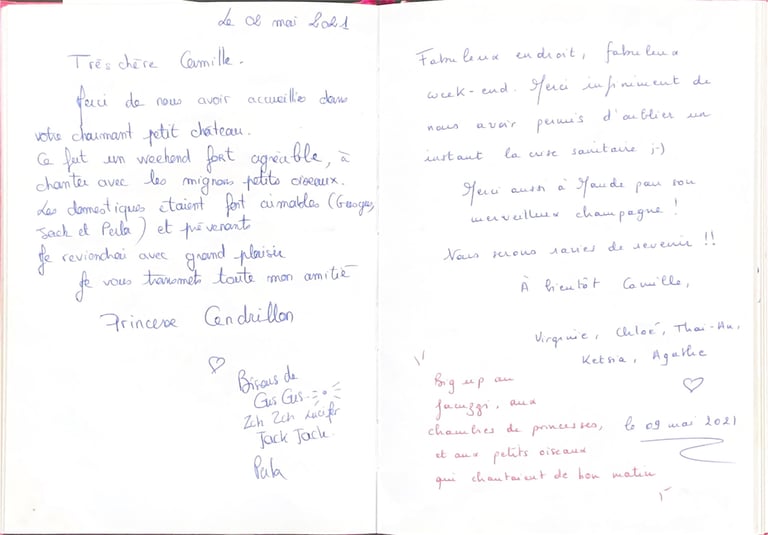 Le 02 mai 2021
Très chère Camille.
Merci de nous avoir accueillis dans
votre charmant petit château.
Ce fut un weekend fort agréable, à
chanter avec les mignons petits oiseaux.
Les domestiques étaient fort aimables (Gusgus,
Jack et Perla) et prévenants
Je reviendrai avec grand plaisir
Je vous transmets toute mon amitié
Princesse Cendrillon
Bisous de
Gus Gus.
Zch Zch Lucifer
Jack Jack.
Perla
Fabuleux endroit, fabuleux
week-end. Merci infiniment de
nous avoir permis d'oublier un
instant la crise sanitaire ;-)
Merci aussi à Maude pour son
merveilleux champagne !
Nous serons ravies de revenir !!
À bientôt Camille,
Virginie, Chloé, Thai-An,
Ketsia, Agathe
Big up au
jacuzzi, aux
chambres de princesses,
et aux petits oiseaux
qui chantaient de bon matin
le 09 mai 2021